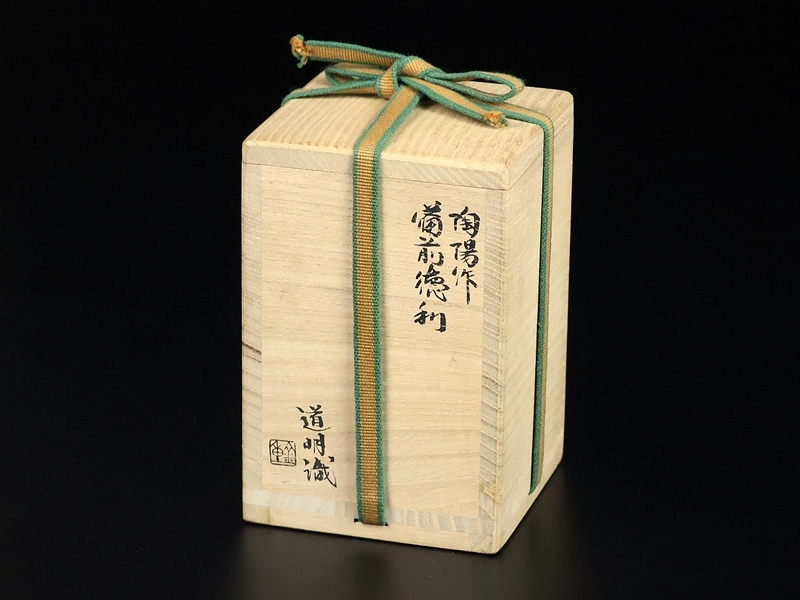 陶陽作
備前徳利
道明識